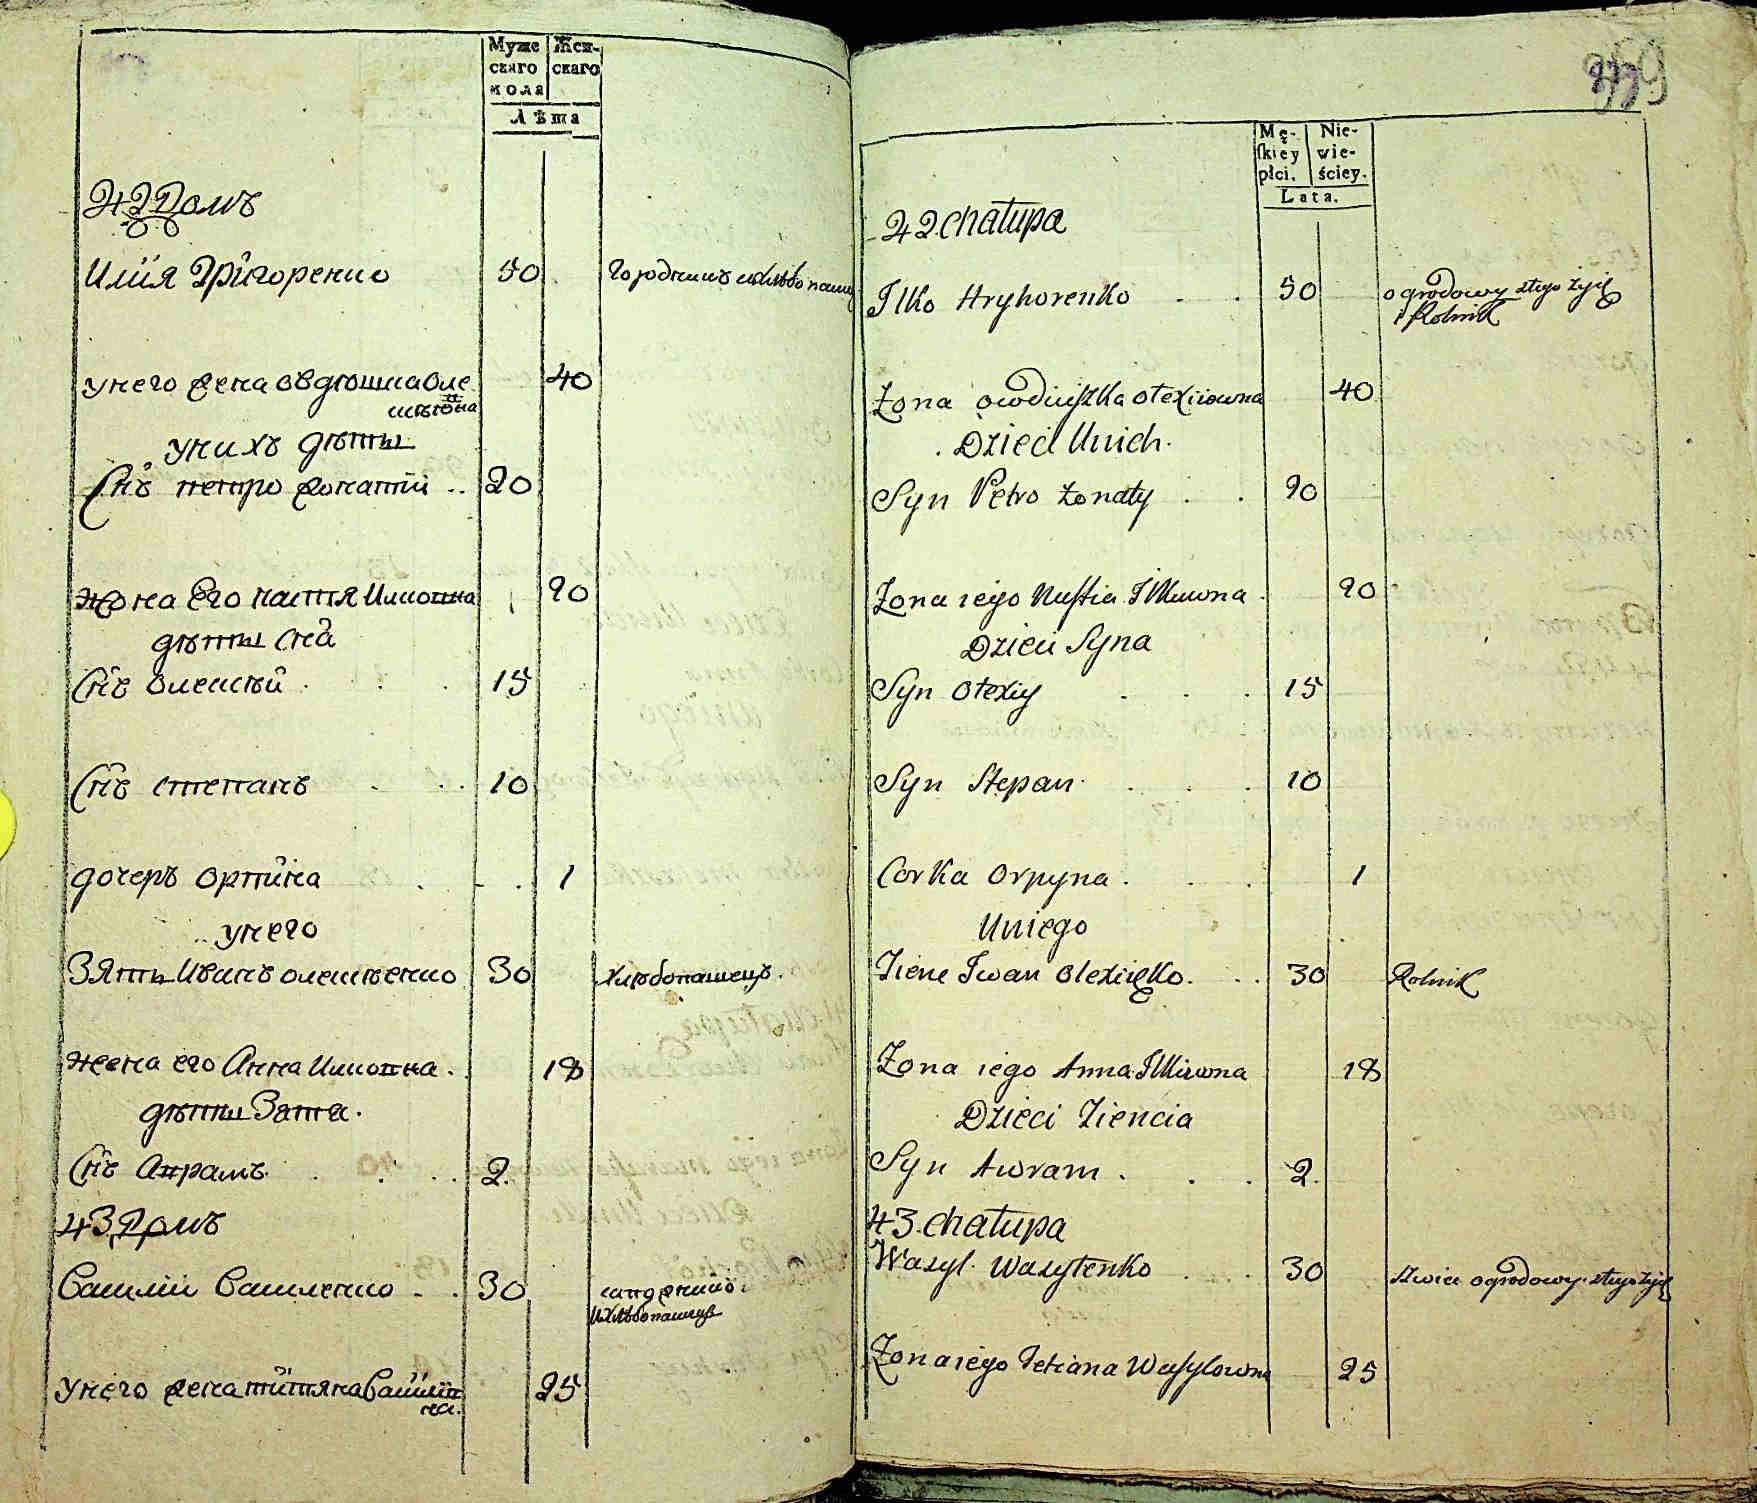 Муже Жен-
скаго скаго
пола
Лѣта
42 Домъ
Илія Григоренко 50 городникъ и хлѣбопашец
унего жена Овдюшка Оле 40
ксѣювна
унихъ дѣти
Снъ петро жонатій .. 20
жона Его настя Илковна 20
дѣти сна
Снъ Олексѣй . . . 15
Снъ степанъ . . . 10
дочеръ орпина . - . 1
унего
Зять Иванъ олексѣенко 30 хлѣбопашецъ.
жена его Анна Илковна . 18
дѣти Затя.
Снъ Апрамъ . . . . 2.
43 Домъ
Василій Василенко . . 30
и хлѣбопашецъ
унего жена титяна Василів 25
на.
359
Mę- Nie-
ſkiey wie-
płci. ściey.
Lata.
42 Chałupa
Ilko Hryhorenko . . 50 ogrodowy z tego żyię
i Rolnik
Żona Owdiuszka Ołexiiowna 40
. Dzieci Unich.
Syn Petro żonaty . . 20
Żona iego Nastia Ilkuwna . 20
Dzieci Syna
Syn Ołexiy . . . 15
Syn Stepan . . . . 10
Corka Orpyna . . . 1
Uniego
Zienc Iwan Olexiięko. . . 30 Rolnik
Żona iego Anna Ilkiuwna 18
Dzieci Ziencia
Syn Awram . . . 2.
43. Chałupa
Wasyl. Wasylenko . . . 30 szwiec ogrodowy z tego żyię
Żona iego Tetiana Wasylowna 25